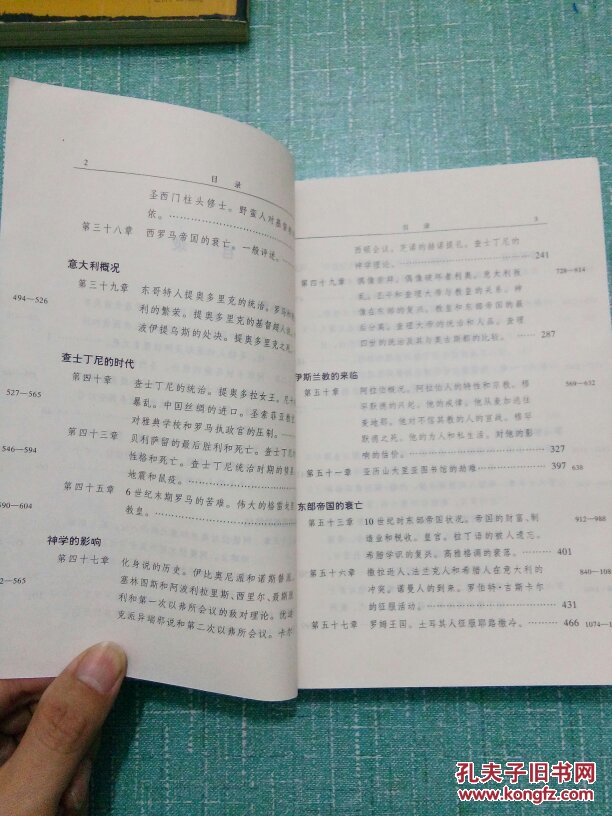 2
目 录
圣西门柱头修士。野蛮人对基督教
依。
第三十八章 西罗马帝国的衰亡。一般评述。
意大利概况
494—526
第三十九章 东哥特人提奥多里克的统治。罗马和
利的繁荣。提奥多里克的基督超人说。
波伊提乌斯的处决。提奥多里克之死。
查士丁尼的时代
527—565
第四十章 查士丁尼的统治。提奥多拉女王。尼卡
暴乱。中国丝绸的进口。圣索菲亚教
对雅典学校和罗马执政官的压制。
546—594
第四十三章 贝利萨留的最后胜利和死亡。查士丁尼
性格和死亡。查士丁尼统治时期的彗星
地震和鼠疫。
590—604
第四十五章 6世纪末期罗马的苦难。伟大的格雷戈
教皇。
神学的影响
2—565
第四十七章 化身说的历史。伊比奥尼派和诺斯替派
塞林图斯和阿波利拉里斯、西里尔、聂斯脱
利和第一次以弗所会议的敌对理论。优迪
克派异端邪说和第二次以弗所会议。卡尔
目 录
3
西顿会议。芝诺的赫诺提孔。查士丁尼的
神学理论。 241
第四十九章 偶像崇拜。偶像破坏者利奥。意大利叛
728—814
乱。丕平和查理大帝与教皇的关系。神
像在东部的复兴。教皇和东部帝国的最
后分离。查理大帝的统治和人品。查理
四世的统治及其与奥古斯都的比较。 287
伊斯兰教的来临
第五十章 阿拉伯概况。阿拉伯人的特性和宗教。穆
569—632
罕默德的兴起。他的戒律。他从麦加逃往
麦地那。他对不信其教的人的宣战。穆罕
默德之死。他的为人和私生活。对他的影
响的估价。 327
第五十一章 亚历山大里亚图书馆的劫难 397 638
东部帝国的衰亡
第五十三章 10世纪时东部帝国状况。帝国的财富、制
912—988
造业和税收。皇宫。拉丁语的被人遗忘。
希腊学识的复兴。高雅格调的衰落。 401
第五十六章 撒拉逊人、法兰克人和希腊人在意大利的
840—108
冲突。诺曼人的到来。罗伯特·吉斯卡尔
的征服活动。 431
第五十七章 罗姆王国。土耳其人征服耶路撒冷。 466 1074—1
孔夫子旧书网
www.kongfz.com